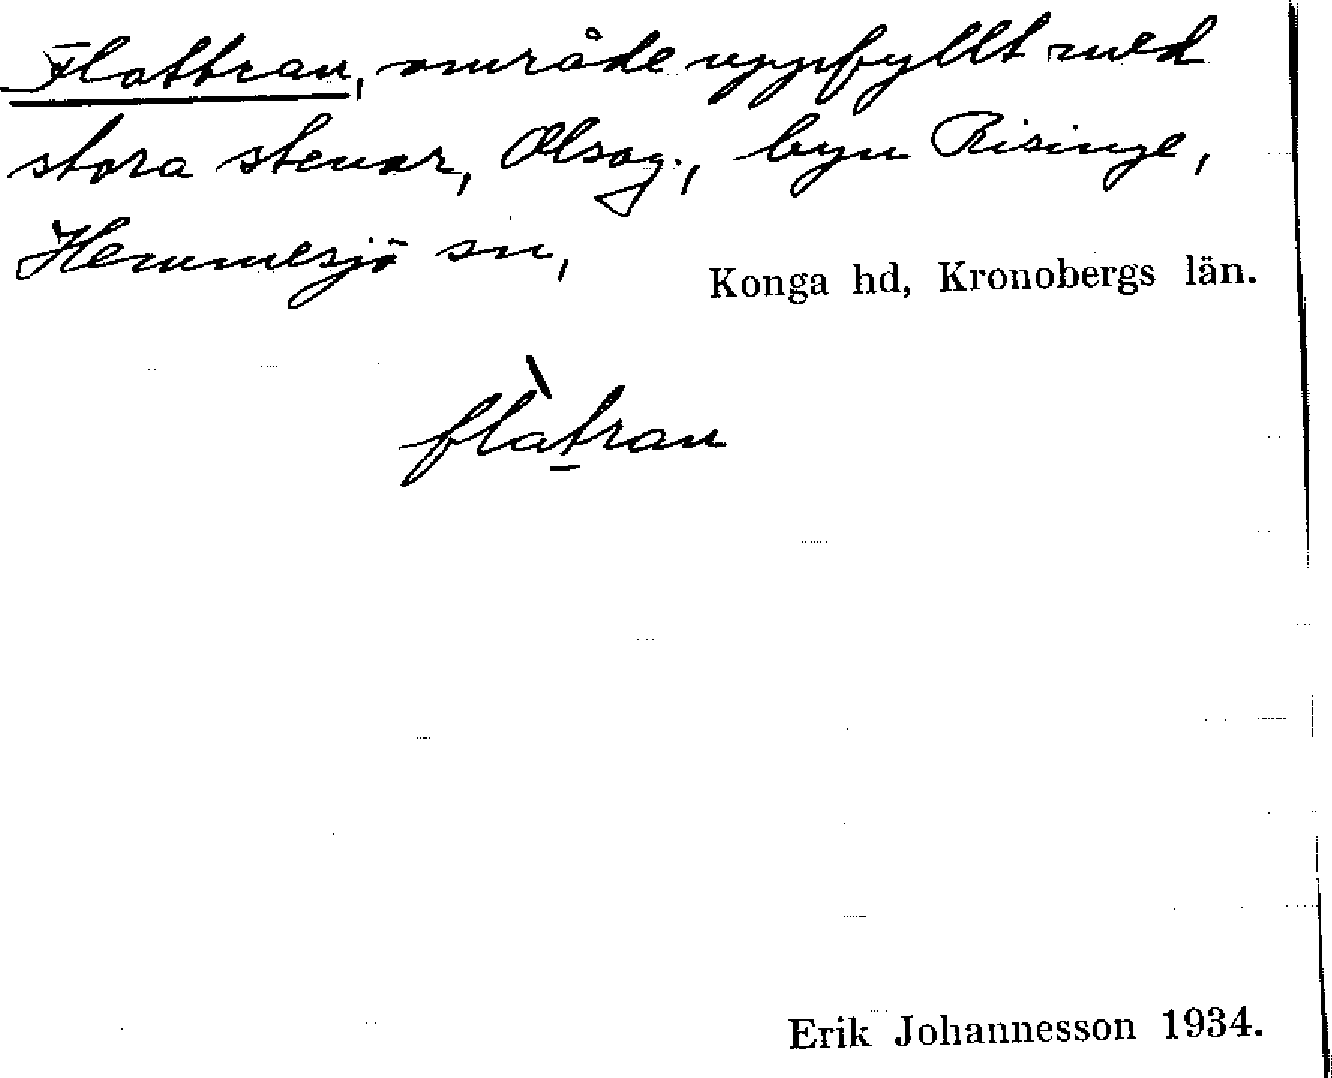 Flattran, område uppfyllt med
stora stenar, Olsag., byn Risinge,
Hemmesjö sn,
Konga hd, Kronobergs län.
flàt̲ran
Erik Johannesson 1934.